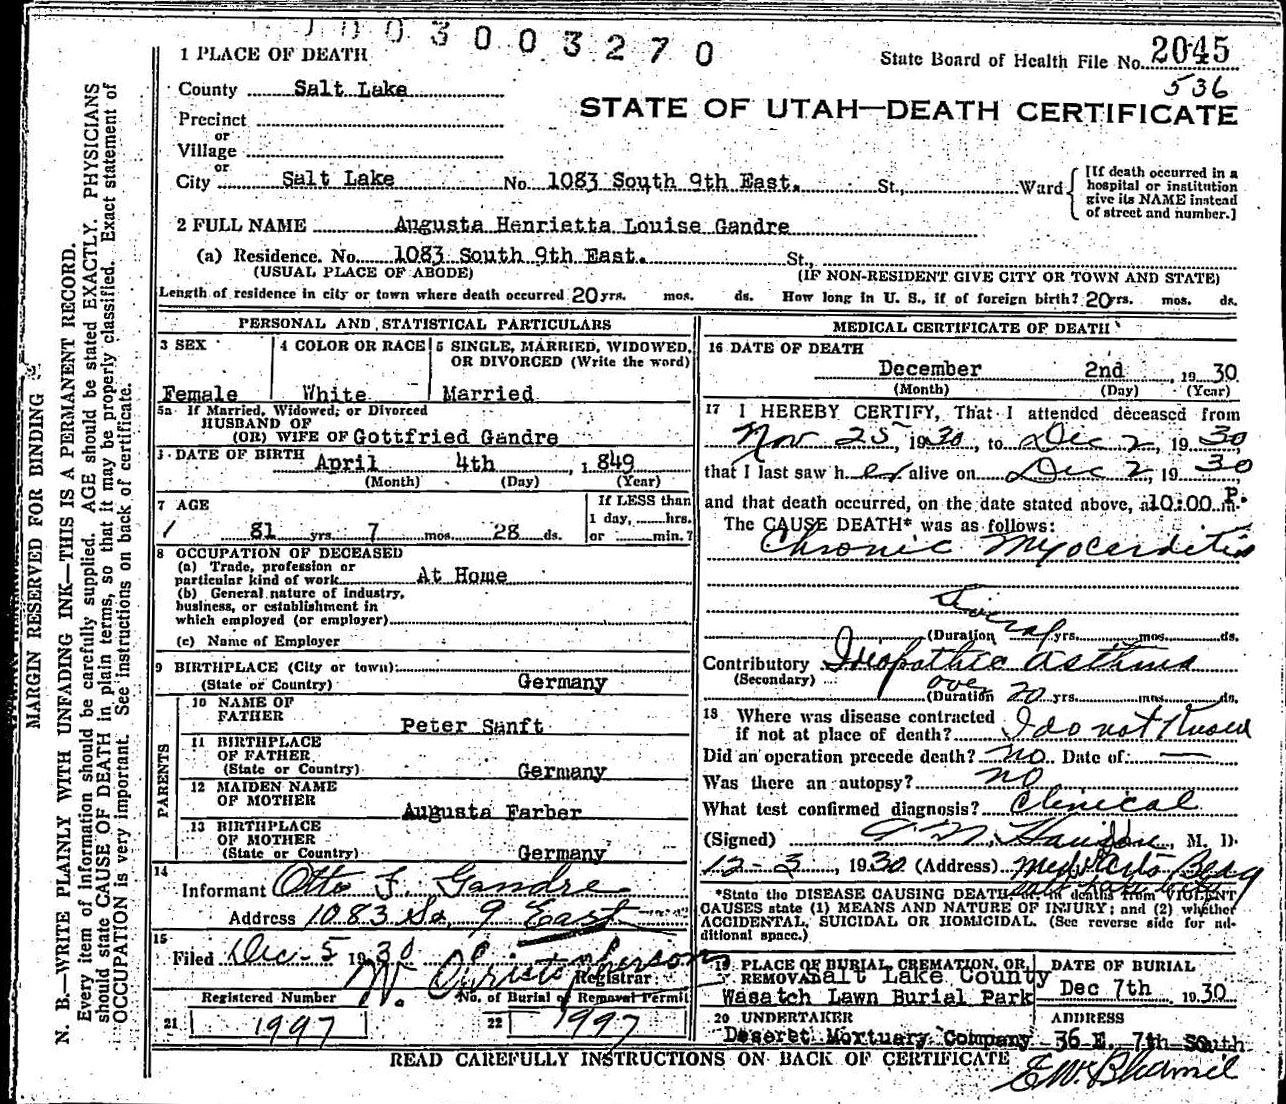 003003270
1 PLACE OF DEATH
State Board of Health File No. 2045
536
County Salt Lake
STATE OF UTAH—DEATH CERTIFICATE
Precinct
or
Village
or
City Salt Lake No. 1083 South 9th East. St., Ward
[If death occurred in a
hospital or institution
give its NAME instead
of street and number.]
2 FULL NAME Augusta Henrietta Louise Gandre
(a) Residence. No. 1083 South 9th East. St.,
(USUAL PLACE OF ABODE) (IF NON-RESIDENT GIVE CITY OR TOWN AND STATE)
Length of residence in city or town where death occurred 20 yrs. mos. ds. How long in U. S., if of foreign birth? 20 yrs. mos. ds.
PERSONAL AND STATISTICAL PARTICULARS
3 SEX
Female
4 COLOR OR RACE
White
5 SINGLE, MARRIED, WIDOWED,
OR DIVORCED (Write the word)
Married
5a If Married, Widowed, or Divorced
HUSBAND OF
(OR) WIFE OF Gottfried Gandre
DATE OF BIRTH
April 4th, 1849
(Month) (Day) (Year)
7 AGE
81 yrs. 7 mos. 28 ds.
If LESS than
1 day, hrs.
or min.?
8 OCCUPATION OF DECEASED
(a) Trade, profession or
particular kind of work At Home
(b) General nature of industry,
business, or establishment in
which employed (or employer)
(c) Name of Employer
9 BIRTHPLACE (City or town):
(State or Country) Germany
PARENTS
10 NAME OF
FATHER
Peter Sanft
11 BIRTHPLACE
OF FATHER
(State or Country) Germany
12 MAIDEN NAME
OF MOTHER
Augusta Farber
13 BIRTHPLACE
OF MOTHER
(State or Country) Germany
14
Informant Otto F. Gandre
Address 1083 So. 9 East
15
Filed Dec-5 1930
W. Christopherson
Registrar
Registered Number No. of Burial or Removal Permit
21 1997 22 1997
MEDICAL CERTIFICATE OF DEATH
16 DATE OF DEATH
December 2nd, 1930
(Month) (Day) (Year)
17 I HEREBY CERTIFY, That I attended deceased from
Nov 25, 1930, to Dec 2, 1930,
that I last saw her alive on Dec 2, 1930
and that death occurred, on the date stated above, at 10:00 P. m.
The CAUSE DEATH* was as follows:
Chronic Myocarditis
(Duration yrs. mos. ds.
Contributory Idiopathic asthma
(Secondary)
over
(Duration 20 yrs. mos. ds.
18 Where was disease contracted
if not at place of death? I do not know
Did an operation precede death? no. Date of: —
Was there an autopsy? no
What test confirmed diagnosis? Clinical
(Signed) M. D.
12-3, 1930 (Address) Med Arts Bldg
Salt Lake City
*State the DISEASE CAUSING DEATH, or, in deaths from VIOLENT
CAUSES state (1) MEANS AND NATURE OF INJURY; and (2) whether
ACCIDENTAL, SUICIDAL OR HOMICIDAL. (See reverse side for ad-
ditional space.)
19 PLACE OF BURIAL, CREMATION, OR
REMOVAL Salt Lake County
Wasatch Lawn Burial Park
DATE OF BURIAL
Dec 7th, 1930
20 UNDERTAKER
Deseret Mortuary Company
ADDRESS
36 E. 7th South
READ CAREFULLY INSTRUCTIONS ON BACK OF CERTIFICATE
MARGIN RESERVED FOR BINDING
N. B.—WRITE PLAINLY WITH UNFADING INK—THIS IS A PERMANENT RECORD.
Every item of information should be carefully supplied. AGE should be stated EXACTLY. PHYSICIANS
should state CAUSE OF DEATH in plain terms, so that it may be properly classified. Exact statement of
OCCUPATION is very important. See instructions on back of certificate.